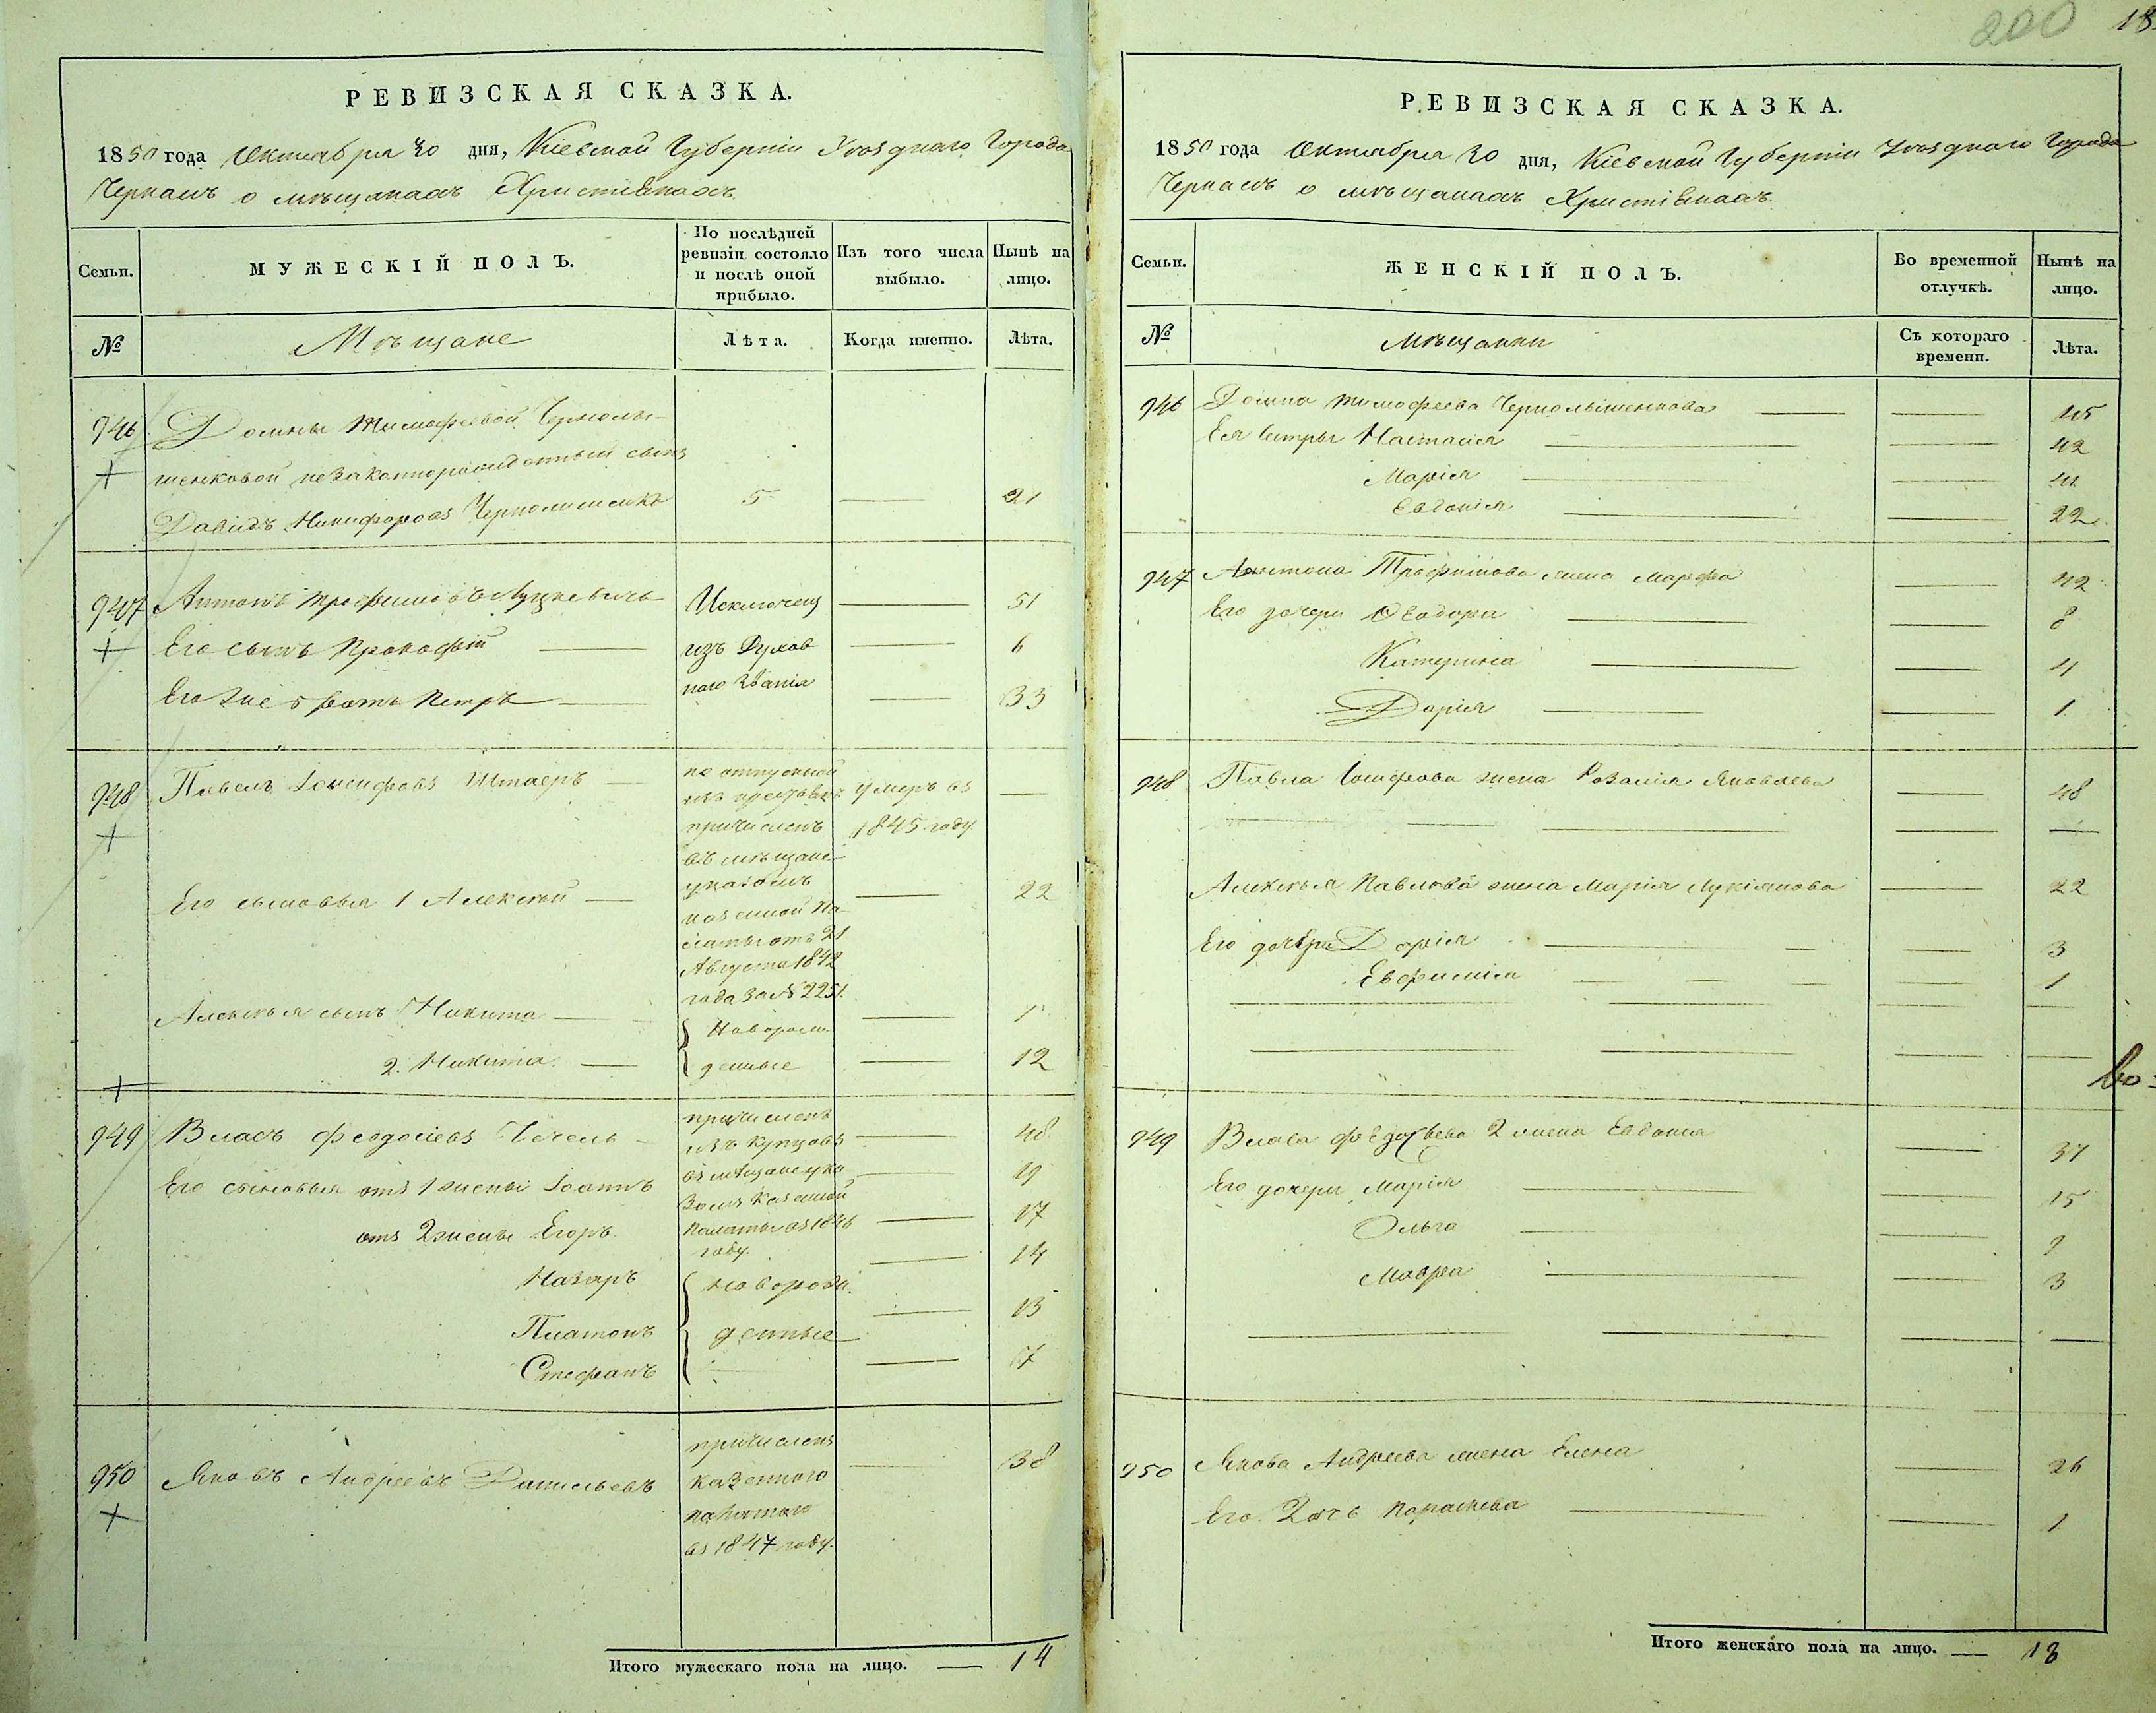 200 18
РЕВИЗСКАЯ СКАЗКА.
1850 года Октября 30 дня, Кіевской Губерніи Уѣзднаго Города
Черкасъ о мѣщанахъ Христіянахъ.
Семьи.
МУЖЕСКІЙ ПОЛЪ.
По послѣдней
ревизіи состояло
и послѣ оной
прибыло.
Изъ того числа
выбыло.
Нынѣ на
лицо.
№
Мѣщане
Лѣта.
Когда именно.
Лѣта.
946 Домны Тимофеевой
незаконнорожденный сынъ
Давидъ Никифоровъ 5 — 21
947 Антонъ Трофимовъ Луцкевичь Исключены — 51
Его сынъ Прокофій — изъ Духов — 6
Его же братъ Петръ — наго Званія — 33
948 Павелъ Іосифовъ — по отпускной
умеръ въ —
причисленъ 1845 году
въ мѣщане
указомъ
Его сыновья 1 Алексѣй — — 22
казенной Па-
латы отъ 21
Августа 1842
года за № 2251.
Алексѣя сынъ Никита — Новорож- — 1
2. Никита — денные — 12
949 Власъ Федосіевъ — причисленъ
изъ купцовъ — 48
въ мѣщане ука
Его сыновья отъ 1 жены Іоаннъ — 19
зомъ Казенной
отъ 2 жены Егоръ Палаты въ 1846 — 17
году.
Назаръ новорож- — 14
Платонъ денные — 13
Стефанъ — 7
950 Яковъ Андреевъ Данильевъ причисленъ — 38
казенною
палатою
въ 1847 году.
Итого мужескаго пола на лицо. — 14
РЕВИЗСКАЯ СКАЗКА.
1850 года Октября 30 дня, Кіевской Губерніи Уѣзднаго Города
Черкасъ о мѣщанахъ Христіянахъ.
Семьи.
ЖЕНСКІЙ ПОЛЪ.
Во временной
отлучкѣ.
Нынѣ на
лицо.
№
Мѣщанки
Съ котораго
времени.
Лѣта.
946 Домна Тимофеева — — 45
Ея Сестры Настасія — — 42
Марія — —
Евдокія — — 22
947 Антона Трофимова жена Марфа — 42
Его дочери Феодора — — 8
Катерина — — 4
Дарія — — 1
948 Павла Іосифова жена Розалія Яковлева — 48
Алексѣя Павлова жена Марія Лукіянова — 22
Его дочери Дарія — — 3
Евфимія — — 1
949 Власа Федосѣева 2 жена Евдокія — 37
Его дочери Марія — — 15
Ольга — — 9
Мавра — — 3
950 Якова Андреева жена Елена — 26
Его Дочь Параскева — — 1
Итого женскаго пола на лицо. — 18